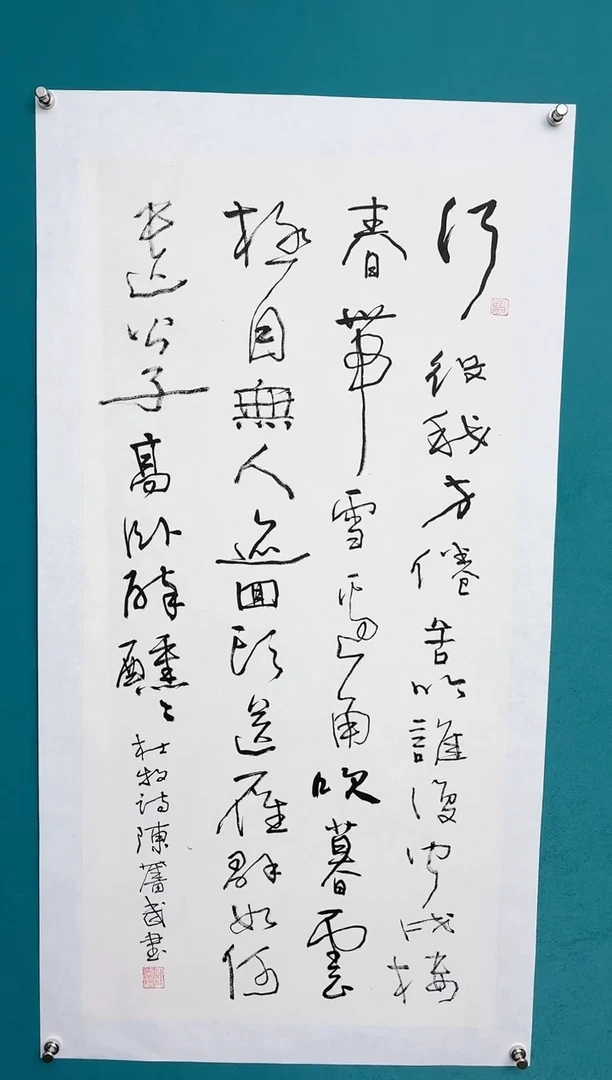 行役我方倦苦吟誰復聞戍樓
春帶雪邊角吹暮雲
極目無人迹回頭送雁群如何
遣公子高卧醉醺々
杜牧詩陳武書